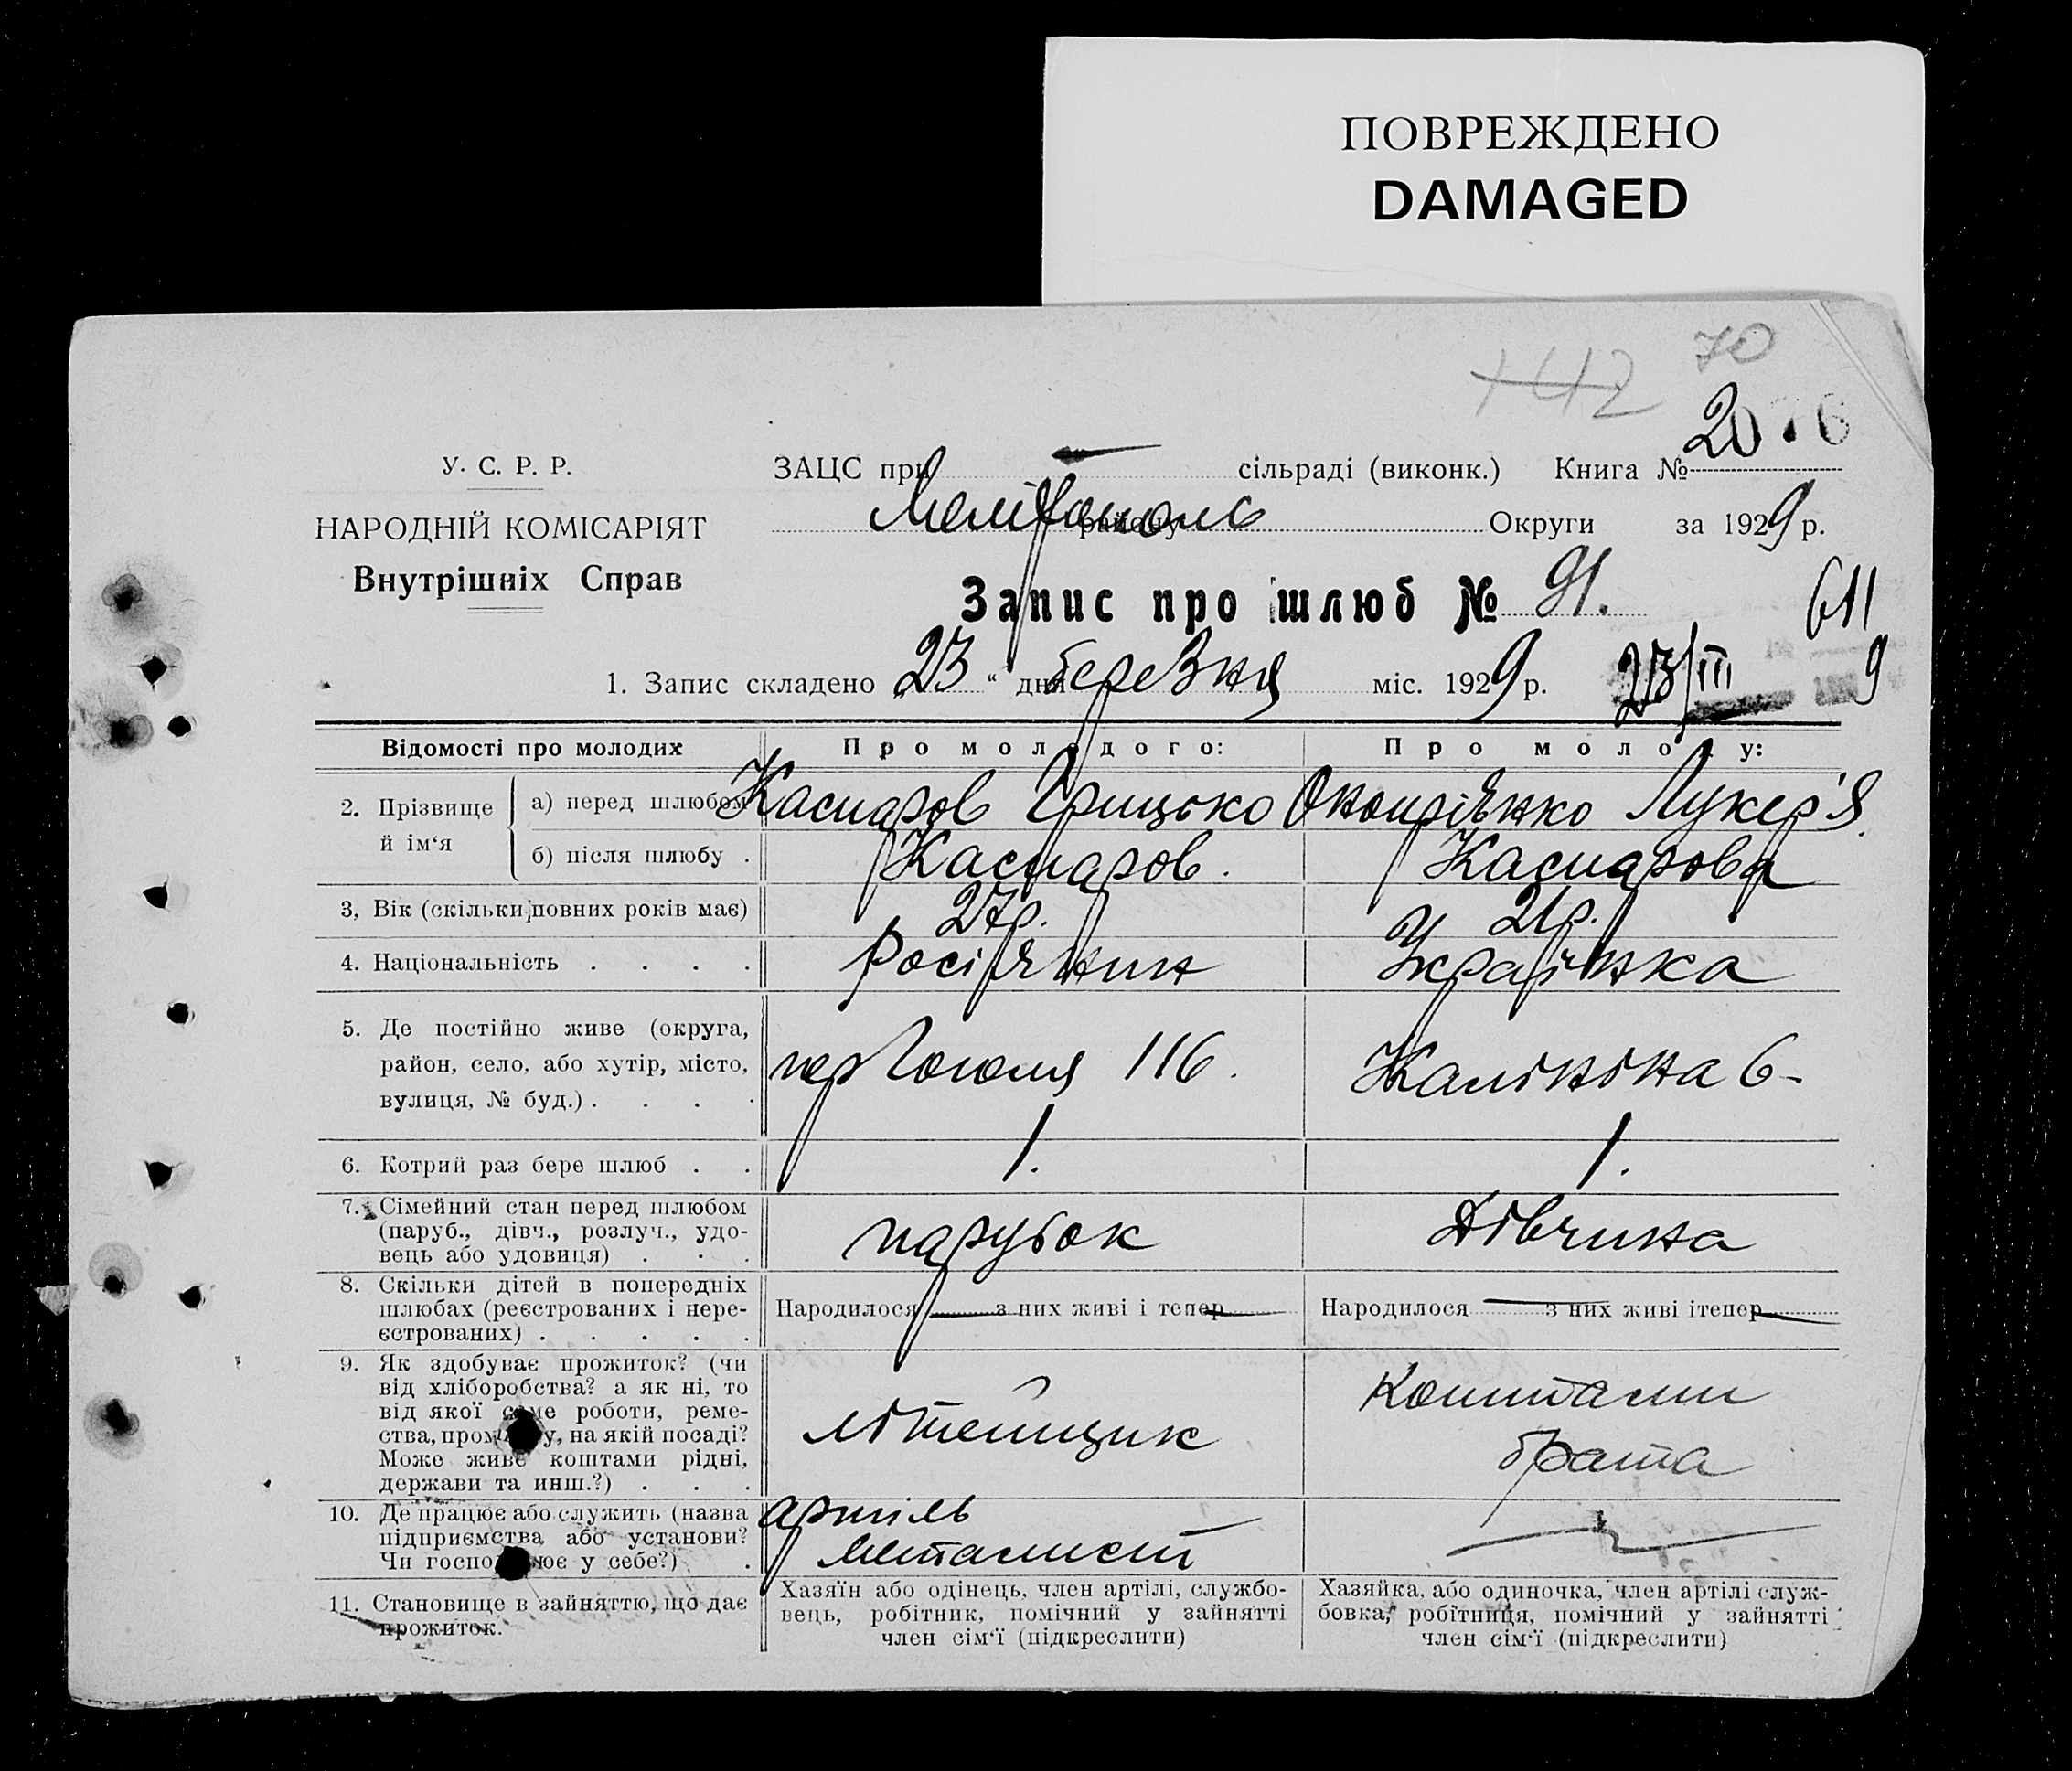 ПОВРЕЖДЕНО
DAMAGED
70
142
2076
У. С. Р. Р.
НАРОДНІЙ КОМІСАРІЯТ
Внутрішніх Справ
ЗАЦС при сільраді (виконк.) Книга №
Мелітополь району Округи за 1929 р.
Запис про шлюб № 91.
611
1. Запис складено „23“ дня березня міс. 1929 р. 23/III 9
Відомості про молодих Про молодого: Про молоду:
2. Прізвище й ім‘я
а) перед шлюбом Каспаров Грицько Лукер'я
б) після шлюбу . Каспаров. Каспарова
3, Вік (скільки повних років має) 27р. 21р.
4. Національність . . . . Росіянин Українка
5. Де постійно живе (округа,
район, село, або хутір, місто,
вулиця, № буд.) . . . .
пер Гоголя 116. Калініна 6-
6. Котрий раз бере шлюб . . 1. 1.
7. Сімейний стан перед шлюбом
(паруб., дівч., розлуч., удо-
вець або удовиця) . . .
парубок Дівчина
8. Скільки дітей в попередніх
шлюбах (реєстрованих і нере-
єстрованих) . . . . .
Народилося — з них живі і тепер — Народилося — з них живі ітепер —
9. Як здобуває прожиток? (чи
від хліборобства? а як ні, то
від якої саме роботи, реме-
ства, промислу, на якій посаді?
Може живе коштами рідні,
держави та инш.?) . . .
літейщик Коштами
брата
10. Де працює або служить (назва
підприємства або установи?
Чи господарює у себе?) .
артіль
Металист —
11. Становище в зайняттю, що дає
прожиток.
Хазяїн або одінець, член артілі, службо-
вець, робітник, помічний у зайнятті
член сім‘ї (підкреслити)
Хазяйка, або одиночка, член артілі служ-
бовка, робітниця, помічний у зайнятті
член сім‘ї (підкреслити)